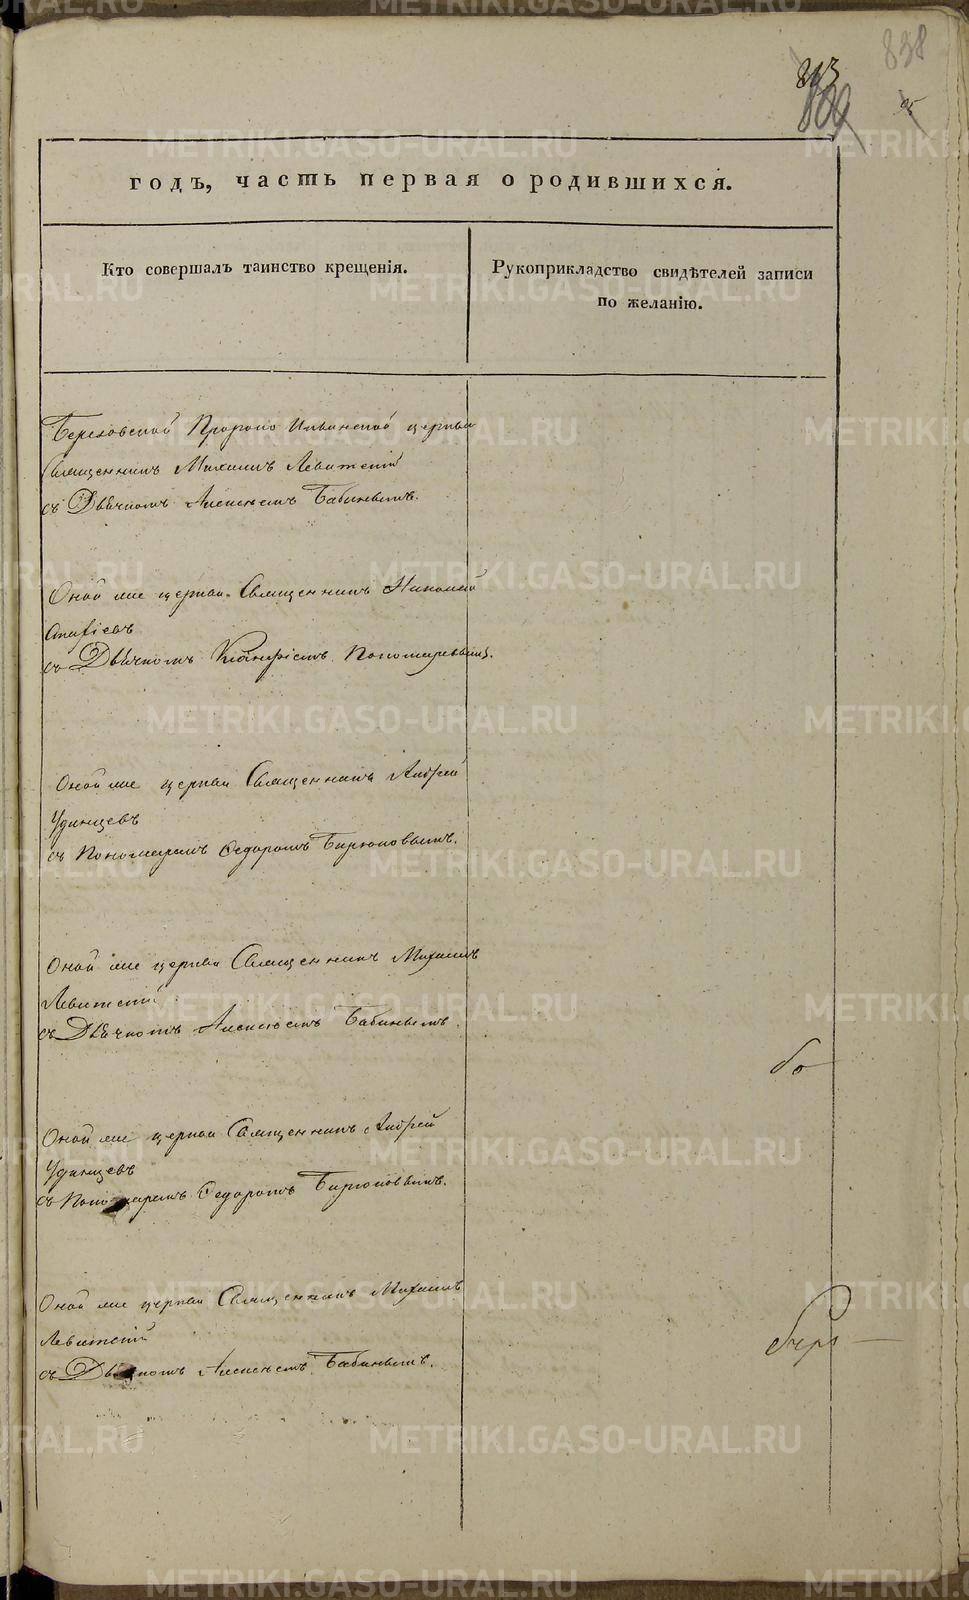 838
813
809
95
годъ, часть первая о родившихся.
Кто совершалъ таинство крещенія.
Рукоприкладство свидѣтелей записи
по желанію.
Пророко Ильинской церкви
Священникъ Михаилъ Левитскій
съ Дьячкомъ Алексѣемъ Бабинымъ.
Оной же церкви Священникъ Николай
съ Дьячкомъ Пономаревымъ.
Оной же церкви Священникъ Андрей
Удинцевъ
съ Пономаремъ Ѳедоромъ Бирюковымъ.
Оной же церкви Священникъ Михаилъ
Левитскій
съ Дьячкомъ Алексѣемъ Бабинымъ.
Оной же церкви Священникъ Андрей
Удинцевъ
съ Пономаремъ Ѳедоромъ Бирюковымъ.
Оной же церкви Священникъ Михаилъ
Левитскій
съ Дьячкомъ Алексѣемъ Бабинымъ.
METRIKI.GASO-URAL.RU